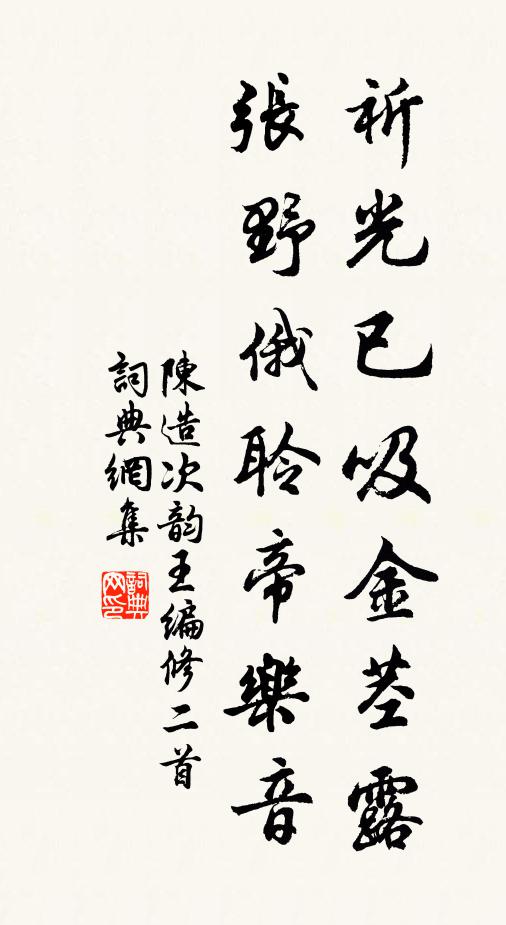 祈光已吸金莖露
張野俄聆帝樂音
陳造次韵王編修二首
詞典網集
詞典网印